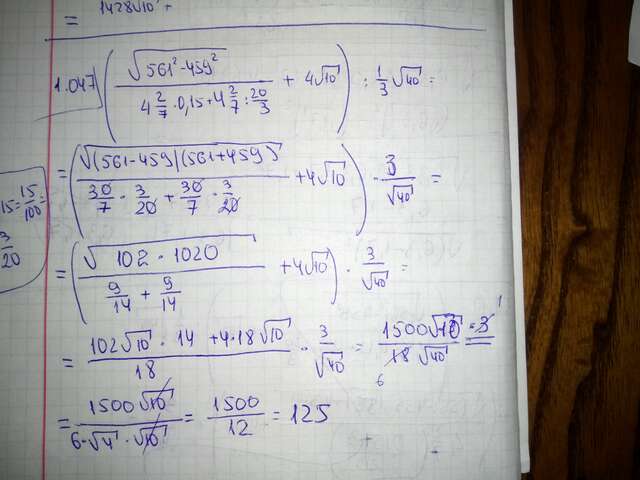 15 = 15/100 = 3/20
= 1428√10 +
1.047) (√(561² - 459²) / (4 2/7 · 0,15 + 4 2/7 : 20/3) + 4√10) : 1/3 √40 =
= (√((561-459)(561+459)) / (30/7 · 3/20 + 30/7 · 3/20) + 4√10) · 3/√40 =
= (√(102 · 1020) / (9/14 + 9/14) + 4√10) · 3/√40 =
= (102√10 · 14 + 4·18√10) / 18 · 3/√40 = 1500√10 · 3 / 18√40
= 1500√10 / 6·√4 · √10 = 1500/12 = 125